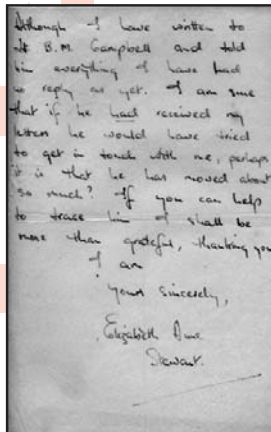 Although I have written to
Lt B.M. Campbell and told
him everything I have had
no reply as yet. I am sure
that if he had received my
letters he would have tried
to get in touch with me, perhaps
it is that he has moved about
so much? If you can help
to trace him I shall be
more than grateful, thanking you
I am
yours sincerely,
Elizabeth Anne
Stewart.